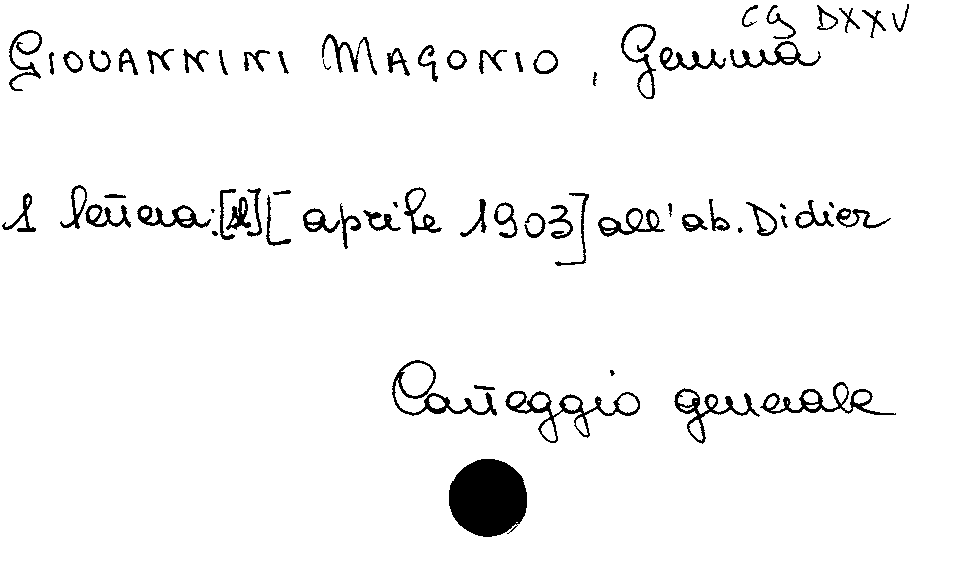 CG DXXV
GIOVANNINI MAGONIO, Gemma
1 lettera: [sl] [aprile 1903] all'ab. Didier
Carteggio generale